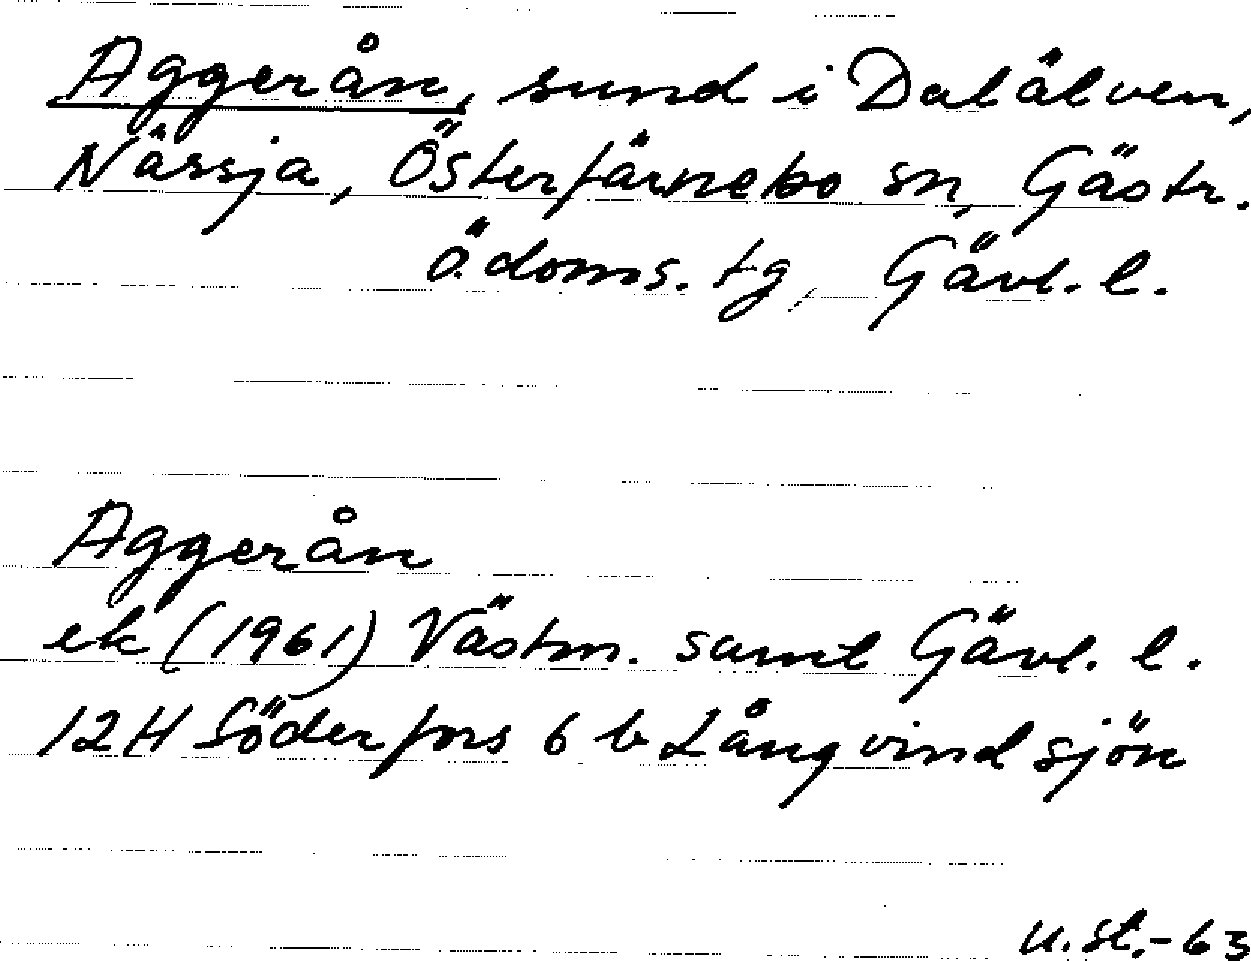 Aggerån, sund i Dalälven,
Nässja, Österfärnebo sn, Gästr.
ö. doms. tg, Gävl. l.
Aggerån
ek (1961) Västm. samt Gävl. l.
12H Söderfors 6 b Långvindsjön
u.st.-63